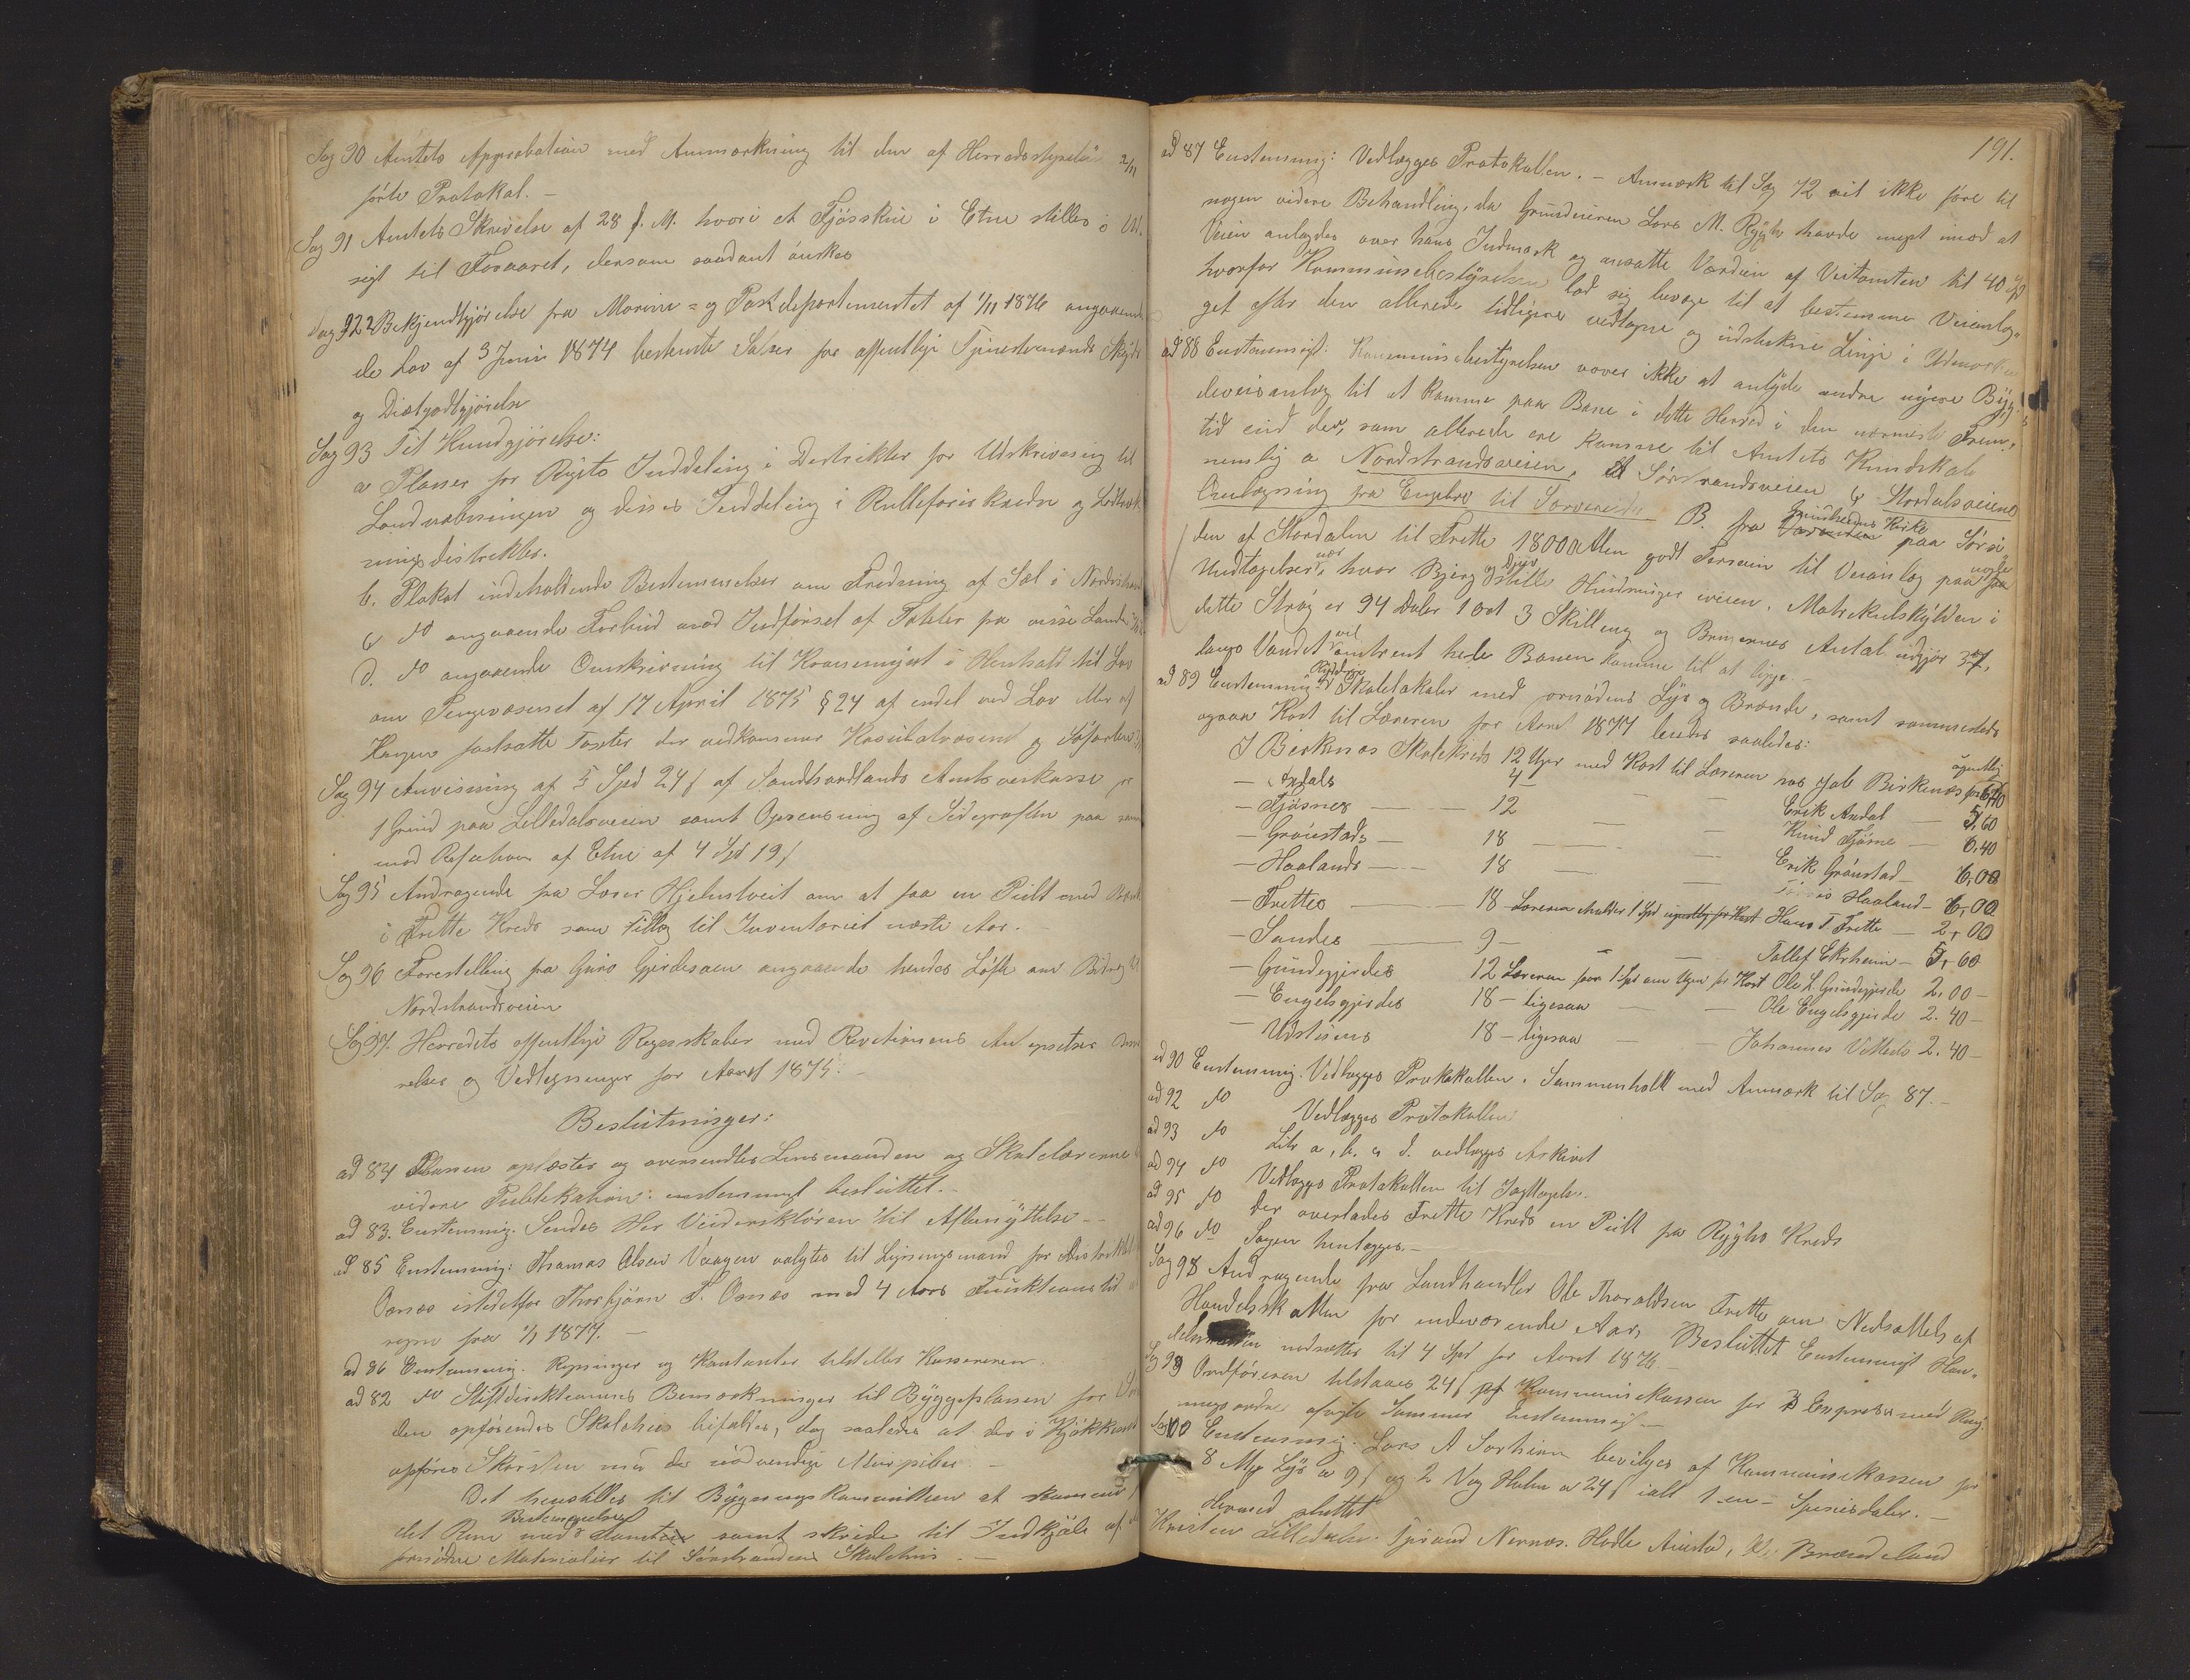 Sag 90 Amtets Approbation med Anmærkning til den af Herredsstyrelsen 2/11
førte Protokol. –
Sag 91 Amtets Skrivelse af 28 f. M. hvori et Fjøsskue i Etne stilles i Ud-
sigt til Foraaret, dersom saadant ønskes
Sag 92 Bekjendtgjørelse fra Marine- og Postdepartementet af 1/11 1876 angaaende
de Lov af 3 Juni 1874 bestemte Satser for offentlige Tjenestemænds Skyds
og Diætgodtgjørelse
Sag 93 Til Kundgjørelse:
a Planer for Rigets Inddeling i Distrikter for Udskrivning til
Landværningen og disses Inddeling i Rulleføriskredse og
ningsdistrikter.
b. Plakat indeholdende Bestemmelser om Fredning af Sæl i Nordishavet
c do angaaende Forbud mod Indførsel af Poteter fra visse Lande
d. do angaaende Omskrivning til Kronemynt i Henhold til Lov
om Pengevæsenet af 17 April 1875 § 24 af endel ved Lov eller af
Kongen fastsatte Taxter der vedkommer Konsulatvæsenet og Søfarten
Sag 94 Anvisning af 5 Spd 24 ß af Søndhordlands Amtsveikasse for
1 Grind paa Litledalsveien samt Oprensning af Sidegrøften paa samme
mod Refusion af Etne af 4 Spd 19 ß
Sag 95 Andragende fra Lærer Hjelmtveit om at faa en Pult med Bænk
i Frette Kreds som Tillæg til Inventariet næste Aar. –
Sag 96 Forestilling fra Guro Gjerdesaen angaaende hendes Løfte om Bidrag til
Nordstrandsveien
Sag 97. Herredets offentlige Regnskaber med Revisionens Antegnelser Besva-
relser og Vedtegninger for Aaret 1875. –
Beslutninger:
ad 84 Planen oplæstes og oversendtes Lensmanden og Skolelærerne til
videre Publikation: enstemmigt besluttet. –
ad 83. Enstemmig: Sendes Hr Veidirektøren til Afbenyttelse. –
ad 85 Enstemmig: Thomas Olsen Vaagen valgtes til Lysningsmand for Distriktet
Osnes istedetfor Thorbjørn T. Osnes med 4 Aars Funktionstid at
regne fra 1/1 1877. –
ad 86 Enstemmig. Regninger og Kontanter tilstilles Kassereren.
ad 82 do Stiftdirektionens Bemærkninger til Byggeplanen for
den opførendes Skolehus bifaldes, dog saaledes at der i Kjøkkenet
opføres Skorsten med de nødvendige Murpiber. –
Det henstilles til Bygningskommitteen at komme
det Rene med Bestemmelse Tomten samt skride til Indkjøb af de
fornødne Materialier til Sørstrandens Skolehus. –
191.
ad 87 Enstemmig: Vedlægges Protokollen. – Anmærk til Sag 72 vil ikke føre til
nogen videre Behandling, da Grundeieren Lars M. Rygh havde meget imod at
Veien anlagdes over hans Indmark og ansatte Værdien af Veitomten til 40 Spd
hvorfor Kommunebestyrelsen lod sig bevæge til at bestemme Veianlæg-
get efter den allerede tidligere vedtagne og udstukne Linje i Udmarken
ad 88 Enstemmigt. Kommunebestyrelsen vover ikke at antyde andre nyere Byg-
deveisanlæg til at komme paa Bane i dette Herred i den nærmeste Frem-
tid end de, som allerede ere komne til Amtets Kundskab
nemlig a Nordstrandsveien, Sørstrandsveien & Stordalsveiens
Omlægning fra Engebro til B. fra Grindheims Kirke paa Søre
den af Stordalen til Frette 18000 Alen godt Terrain til Veianlæg paa nogle
Undtagelser nær hvor Bjerg og Djup stille Hindringer iveien. Matrikulskylden i
dette Strøg er 94 Daler 1 ort 3 Skilling og Brugernes Antal udgjør 37,
langs Vandet vil omtrent hele Banen komme til at ligge. –
ad 89 Enstemmig Skolelokaler med fornøden Lys og Brænde, samt sammesteds
ogsaa Kost til Læreren for Aaret 1877 leies saaledes:
I Birknes Skolekreds 12 Uger med Kost til Læreren hos Jab Birkenes ugentlig for 6,40
– Axdals 4 – – Erik Axdal – 5,60
– Fjøsnes – 12 – – Knud Fjøsne – 6,40
– Grønstads – 18 – – Erik Grønstad – 6,00
– Haalands – 18 – – Haaland – 6,00
– Frettes – 18 Læreren erholder 1 Spd ugentlig for Kost Hans T. Frette – 2,00
– Sandes – 9 – – Tollef Ekrheim – 5,60
– Grindegjerdes 12 Læreren faar 1 Spd om Ugen for Kost Ole L. Grindegjerde 2,00 –
– Engelsgjerdes 18 – ligesaa – Ole Engelsgjerde 2.40 –
– Udstuens 18 – ligesaa – Johannes Vetteds 2.40 –
ad 90 Enstemmig. Vedlægges Protokollen. Sammenhold med Anmærk til Sag 87. –
ad 92 do Vedlægges Protokollen
ad 93 do Litr a, b, c d. vedlægges Arkivet
ad 94 do Vedlægges Protokollen til Iagttagelse.
ad 95 do der overlades Frette Kreds en Pult fra Ryghs Kreds
ad 96 do Sagen henlægges. –
Sag 98 Andragende fra Landhandler Ole Thoraldsen Frette om Nedsættelse af
Handelsskatten for indeværende Aar. Besluttet Enstemmigt Han-
delsskatten nedsættes til 4 Spd for Aaret 1876 –
Sag 99 Ordføreren tilstaaes 24 ß af Kommunekassen for 3 Expresser med Ring-
ningsordre afvigte Sommer Enstemmigt –
Sag 100 Enstemmig. Lars A Sørheim bevilges af Kommunekassen for
8 Mrk Lys a 9 ß og 2 Vog Halm a 24 ß ialt 1 – en – Speciesdaler. –
Hermed sluttet
Kristen Litledalen. Tjerand Nernæs. Hodle Austad, Brændeland